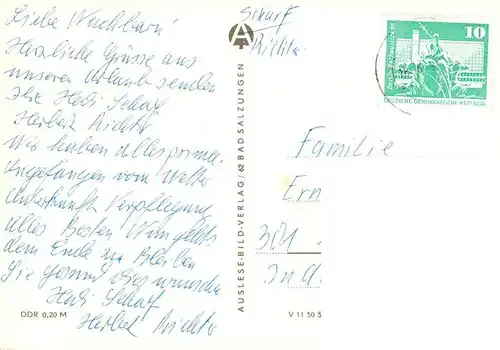 Liebe Nachbarn!
Herzliche Grüsse aus
unseren Urlaub senden
Ihr Hedi Scharf
Herbert Richter
Wir haben alles prima.
Angefangen vom Wetter
Unterkunft Verpflegung
alles Besten. Nun gehts
dem Ende zu. Bleiben
Sie gesund dies wünscht
Hedi Scharf
Herbert Richter
DDR 0,20 M
AUSLESE-BILD-VERLAG / 62 BAD SALZUNGEN
V 11 50 S
Scharf
Richter
10
DEUTSCHE DEMOKRATISCHE REPUBLIK
Familie
Ern
301
In d.